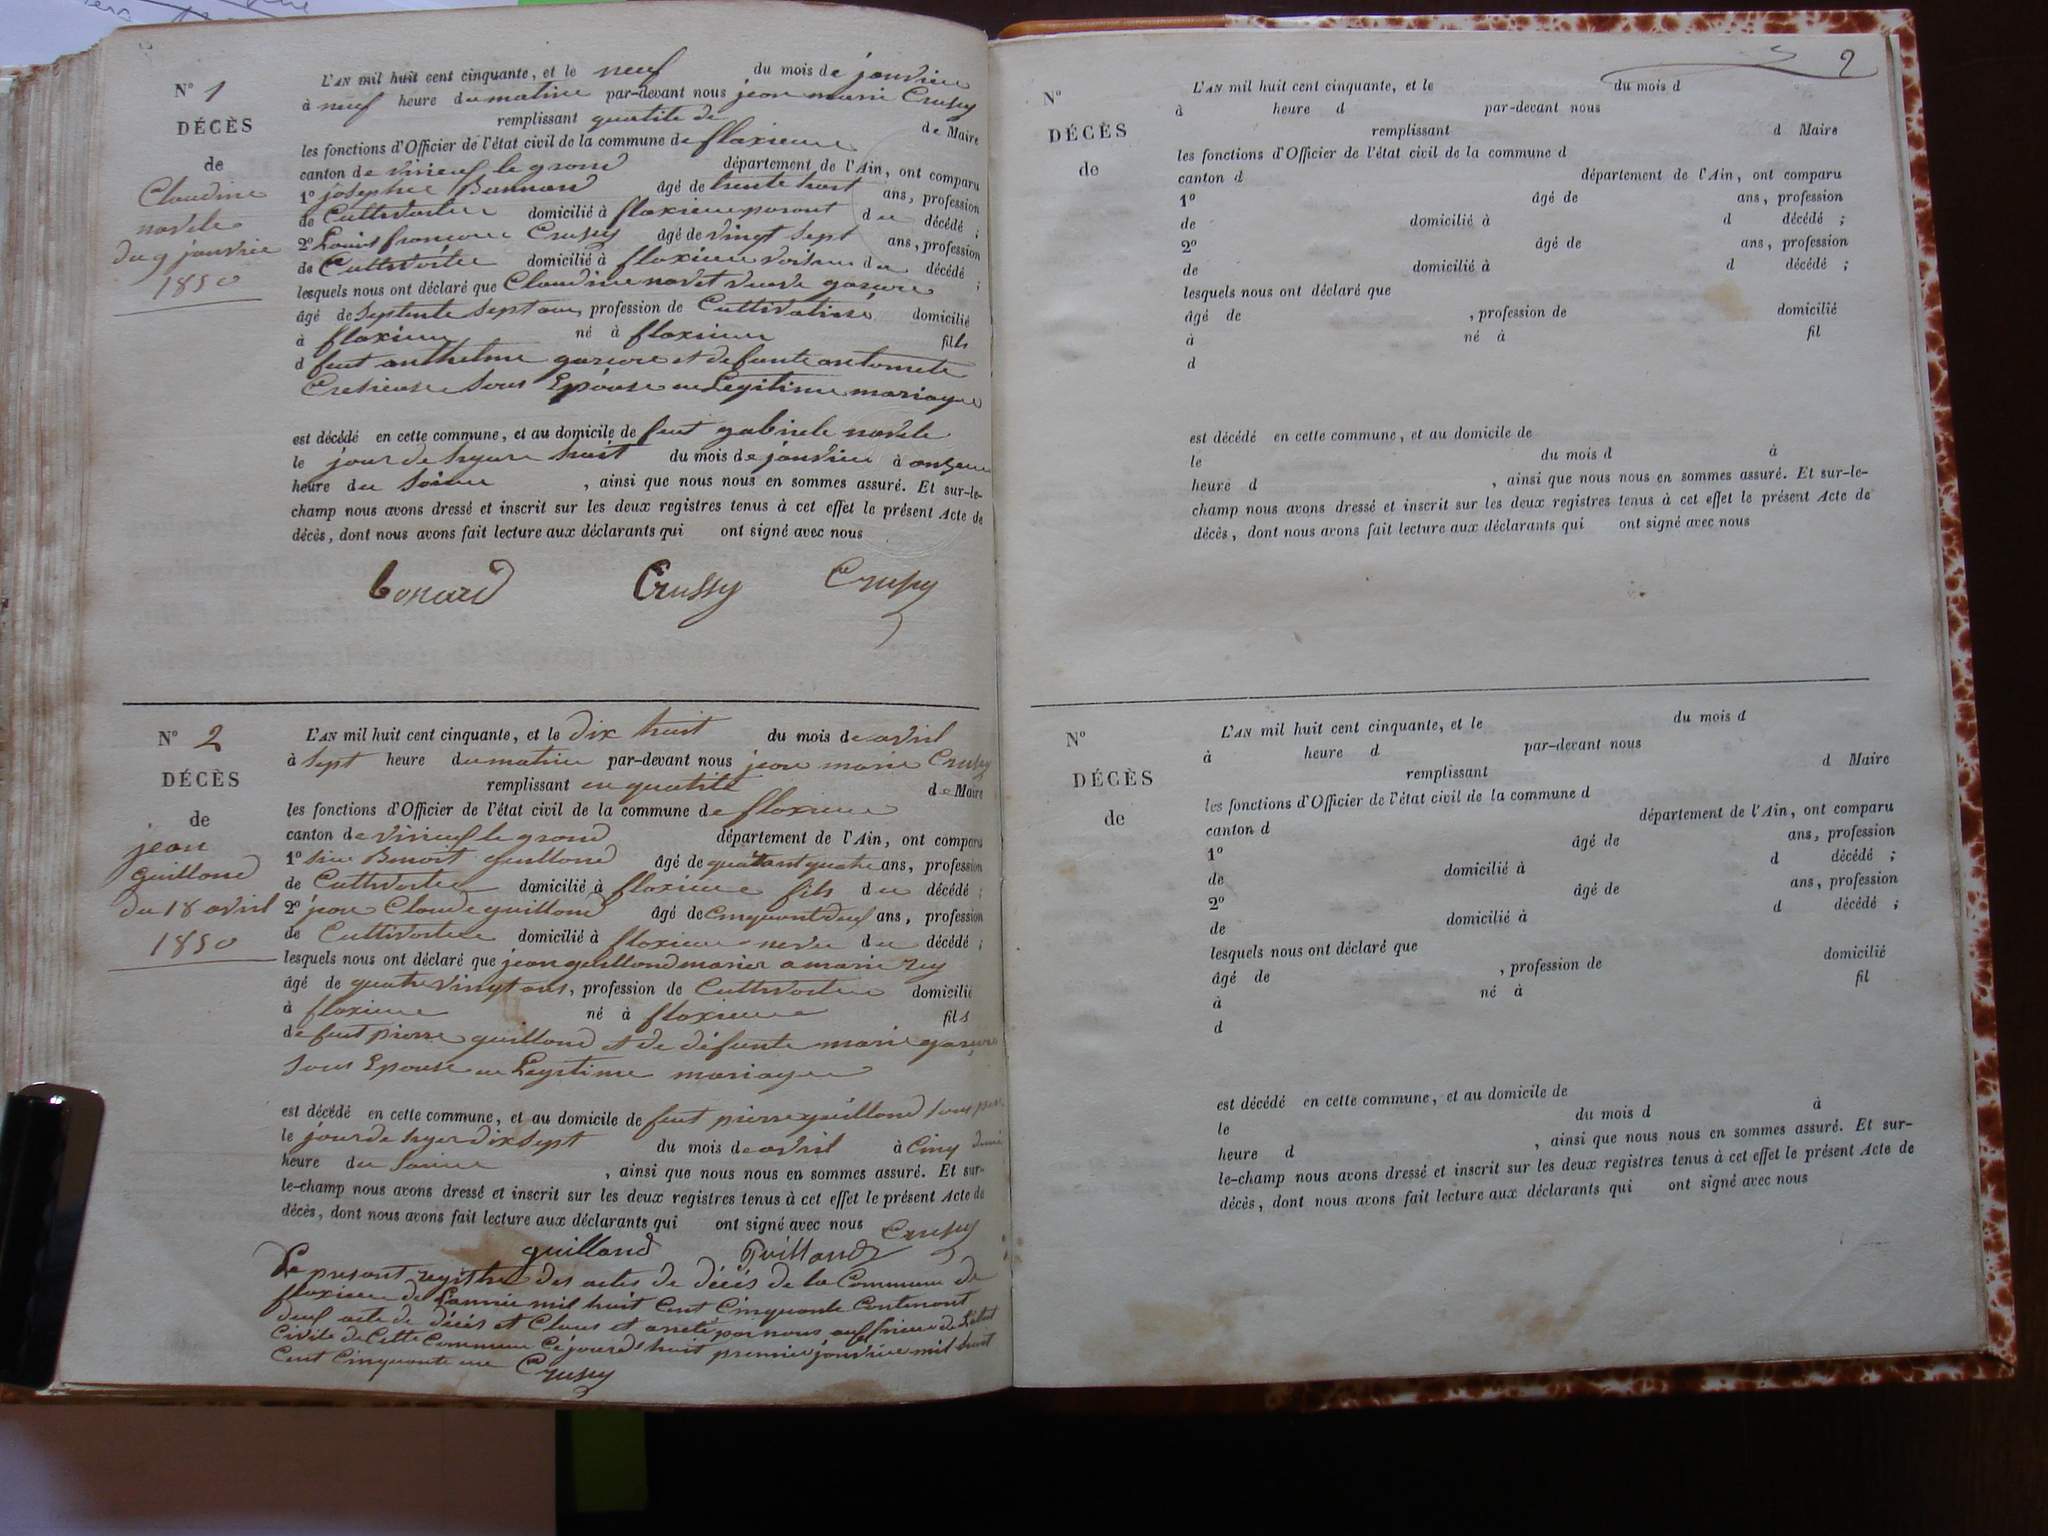 N° 1
DÉCÈS
de
Claudine
novele
du 9 janvier
1850
L'AN mil huit cent cinquante, et le neuf du mois de janvier
à neuf heure du matin par-devant nous jean marie Crussy
remplissant quatité de de Maire
les fonctions d'Officier de l'état civil de la commune de flaxieu
canton de virieu le grand département de l'Ain, ont comparu
1° josephe Bonnard âgé de trente huit ans, profession
de Cultivateur domicilié à flaxieu parant du décédé ;
2° Louis françois Crussy âgé de vingt sept ans, profession
de Cultivateur domicilié à flaxieu voisin du décédé ;
lesquels nous ont déclaré que Claudine novet veuve
âgé de septente sept ans, profession de Cultivatrice domicilié
à flaxieu né à flaxieu fils
d feut anthelme et defunte antoinete
sous Epouse en Legitime mariage
est décédé en cette commune, et au domicile de feut gabriele novele
le jour de hyere huit du mois de janvier à onze
heure du soire , ainsi que nous nous en sommes assuré. Et sur-le-
champ nous avons dressé et inscrit sur les deux registres tenus à cet effet le présent Acte de
décès, dont nous avons fait lecture aux déclarants qui ont signé avec nous
bonard Crussy Crussy
N° 2
DÉCÈS
de
jean
guilland
du 18 avril
1850
L'AN mil huit cent cinquante, et le dix huit du mois de avril
à sept heure du matin par-devant nous jean marie Crussy
remplissant en quatité de Maire
les fonctions d'Officier de l'état civil de la commune de flaxieu
canton de virieu le grand département de l'Ain, ont comparu
1° Benoit guilland âgé de quatant quatre ans, profession
de Cultivateur domicilié à flaxieu fils du décédé ;
2° jean Claude guilland âgé de cinquant deuf ans, profession
de Cultivateur domicilié à flaxieu neveu du décédé ;
lesquels nous ont déclaré que jean guilland marier a marie rey
âgé de quatre vingt ans, profession de Cultivateur domicilié
à flaxieu né à flaxieu fils
de feut pierre guilland et de défunte marie
sous Epouse en Legitime mariage
est décédé en cette commune, et au domicile de feut pierre guilland sont père
le jour de hyer dix sept du mois de avril à Cinq demi
heure du soire , ainsi que nous nous en sommes assuré. Et sur-
le-champ nous avons dressé et inscrit sur les deux registres tenus à cet effet le présent Acte de
décès, dont nous avons fait lecture aux déclarants qui ont signé avec nous
guilland Guilland Crussy
Le present registre des actes de décés de la Commune de
flaxieu de l'année mil huit Cent Cinquante Contenont
deuf acte de décés et Clous et arreté par nous de L'état
Civile de Cette Commune Ce jourd'huit premier janvier mil huit
Cent Cinquante une Crussy
2
N°
DÉCÈS
de
L'AN mil huit cent cinquante, et le du mois d
à heure d par-devant nous
remplissant d Maire
les fonctions d'Officier de l'état civil de la commune d
canton d département de l'Ain, ont comparu
1° âgé de ans, profession
de domicilié à d décédé ;
2° âgé de ans, profession
de domicilié à d décédé ;
lesquels nous ont déclaré que
âgé de , profession de domicilié
à né à fil
d
est décédé en cette commune, et au domicile de
le du mois d à
heure d , ainsi que nous nous en sommes assuré. Et sur-le-
champ nous avons dressé et inscrit sur les deux registres tenus à cet effet le présent Acte de
décès, dont nous avons fait lecture aux déclarants qui ont signé avec nous
N°
DÉCÈS
de
L'AN mil huit cent cinquante, et le du mois d
à heure d par-devant nous
remplissant d Maire
les fonctions d'Officier de l'état civil de la commune d
canton d département de l'Ain, ont comparu
1° âgé de ans, profession
de domicilié à d décédé ;
2° âgé de ans, profession
de domicilié à d décédé ;
lesquels nous ont déclaré que
âgé de , profession de domicilié
à né à fil
d
est décédé en cette commune, et au domicile de
le du mois d à
heure d , ainsi que nous nous en sommes assuré. Et sur-
le-champ nous avons dressé et inscrit sur les deux registres tenus à cet effet le présent Acte de
décès, dont nous avons fait lecture aux déclarants qui ont signé avec nous